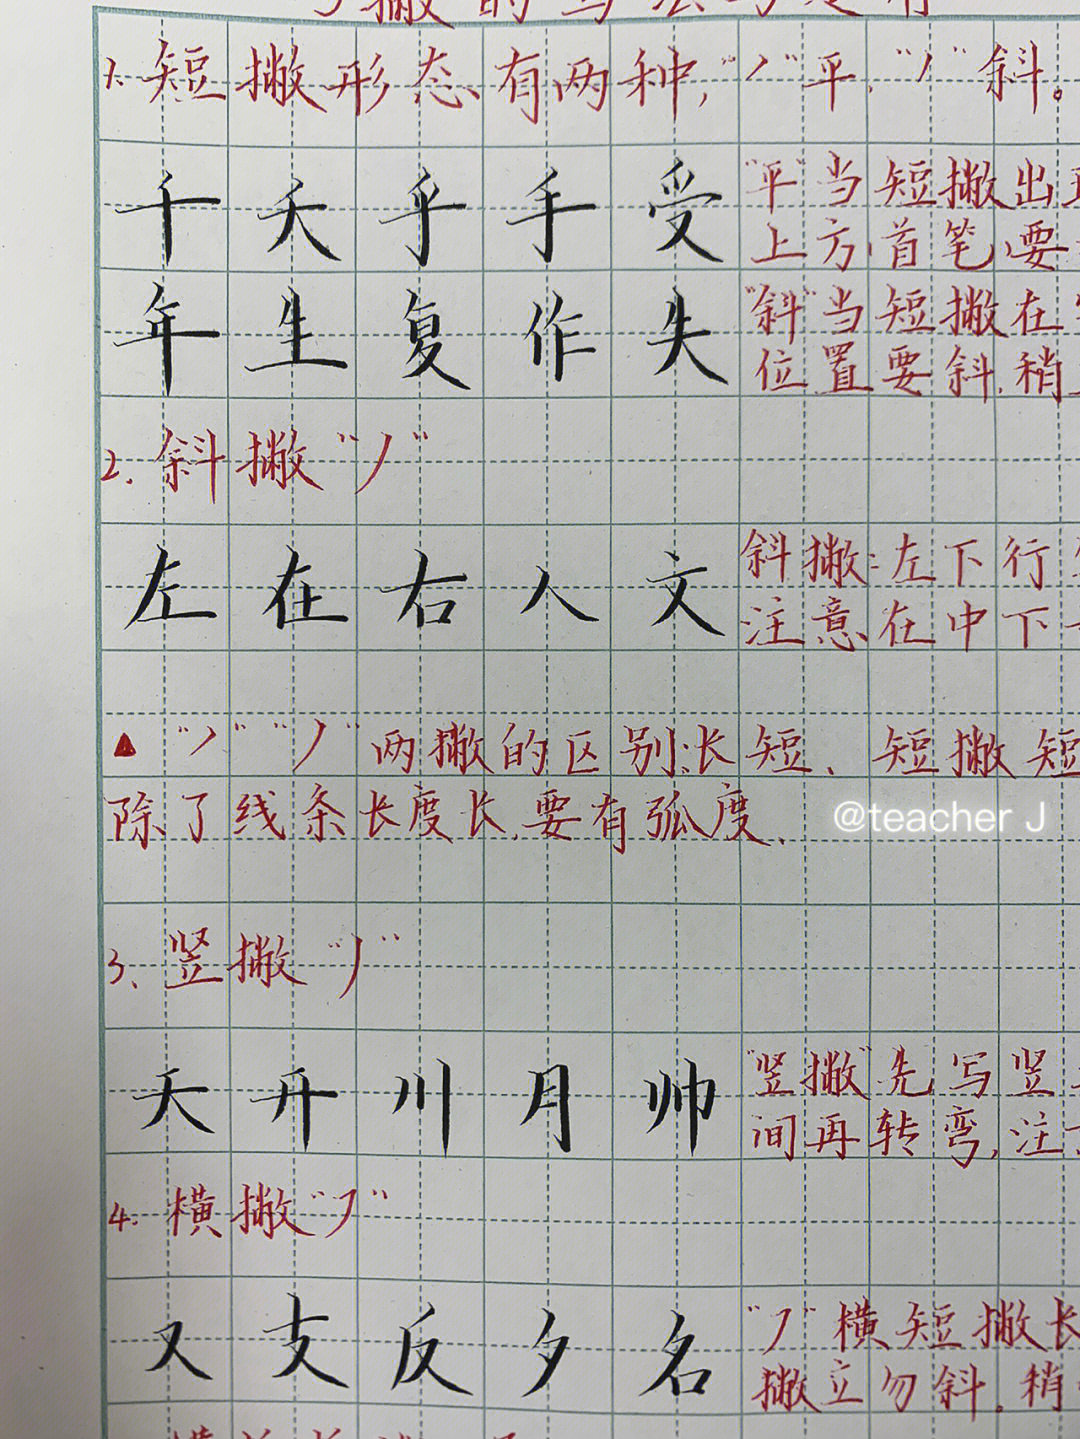 撇的写法
1. 短撇形态有两种,"㇒"平,"㇒"斜。
千夭乎手受 "平"当短撇出
上方首笔,要
年生复作失 "斜"当短撇在
位置要斜,稍
2. 斜撇"丿"
左在右人文 斜撇:左下行
注意在中下
▲ "㇒" "丿"两撇的区别:长短、短撇短
除了线条长度长,要有弧度、
@teacher J
3、竖撇"丿"
天开川月帅 "竖撇"先写竖
间再转弯,注
4. 横撇"㇇"
又支反夕名 "㇇"横短撇长
撇立勿斜。稍